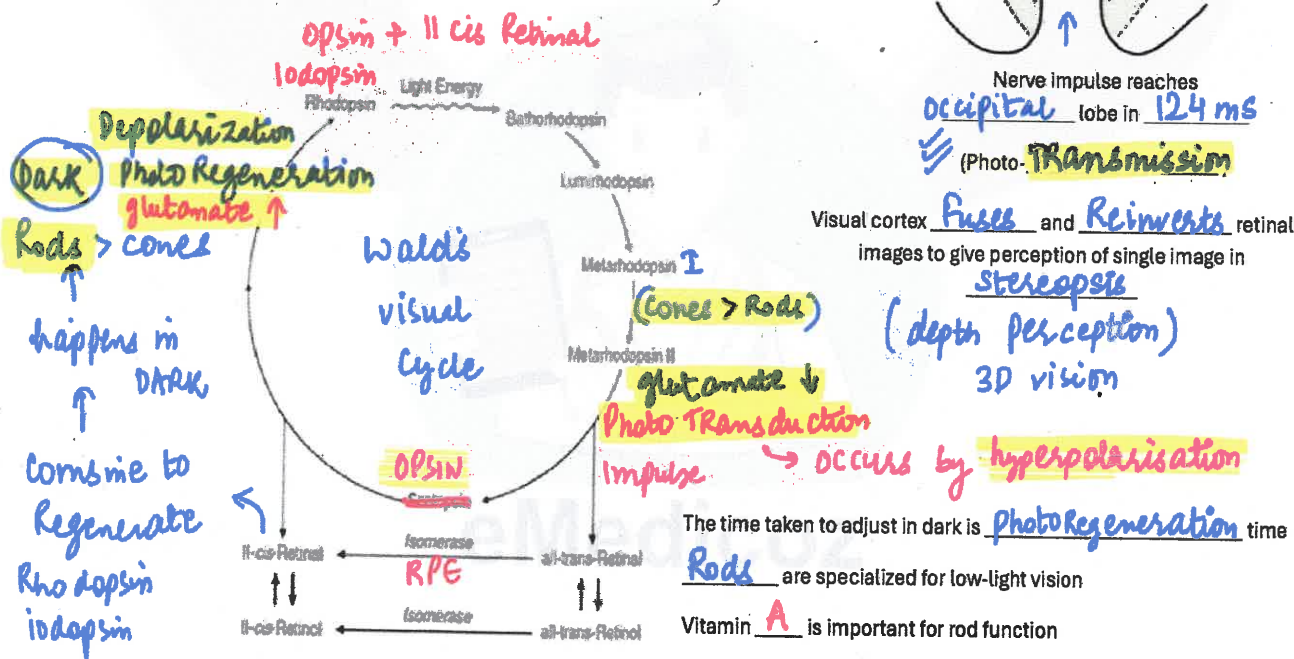 Opsin + 11 cis Retinal
Iodopsin
Rhodopsin
Light Energy
Bathorhodopsin
Lumirhodopsin
Metarhodopsin I
(Cones > Rods)
Metarhodopsin II
glutamate ↓
Photo TRansduction
Impulse
→ occurs by hyperpolarisation
Depolarization
Dark
Photo Regeneration
glutamate ↑
Rods > cones
happens in
DARK
Comsine to
Regenerate
Rhodopsin
iodopsin
Wald's
visual
Cycle
OPSIN
11-cis-Retinal
Isomerase
RPE
all-trans-Retinal
11-cis-Retinol
Isomerase
all-trans-Retinol
eMedicoz
Nerve impulse reaches
occipital lobe in 124 ms
(Photo-TRansmission
Visual cortex Fuses and Reinverts retinal
images to give perception of single image in
stereopsis
(depth perception)
3D vision
The time taken to adjust in dark is PhotoRegeneration time
Rods are specialized for low-light vision
Vitamin A is important for rod function